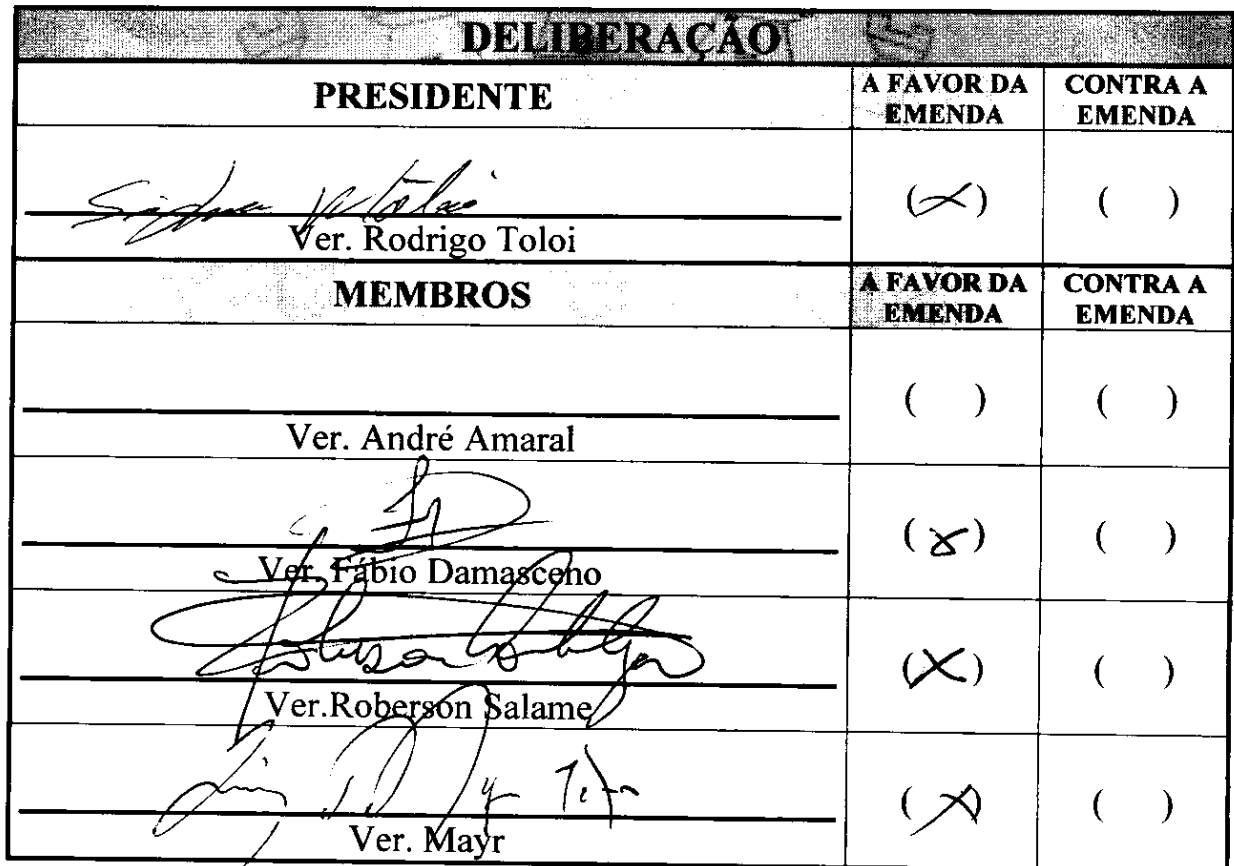 DELIBERAÇÃO
PRESIDENTE
A FAVOR DA
EMENDA
CONTRA A
EMENDA
(X) ( )
Ver. Rodrigo Toloi
MEMBROS
A FAVOR DA
EMENDA
CONTRA A
EMENDA
( ) ( )
Ver. André Amaral
(X) ( )
Ver. Fábio Damasceno
(X) ( )
Ver.Roberson Salame
(X) ( )
Ver. Mayr